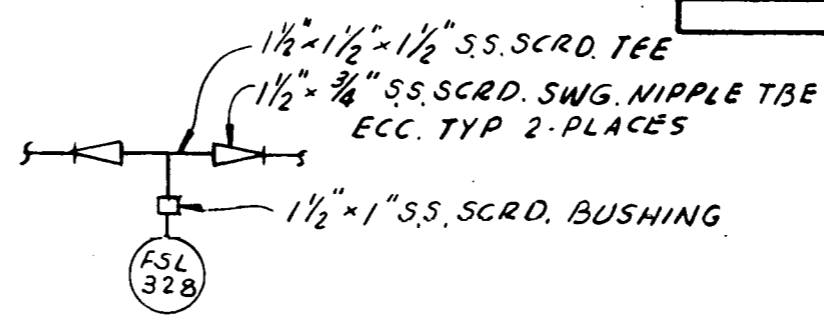 1½"×1½"×1½" S.S. SCRD. TEE
1½"×¾" S.S. SCRD. SWG. NIPPLE TBE
ECC. TYP 2-PLACES
1½"×1" S.S. SCRD. BUSHING
FSL
328